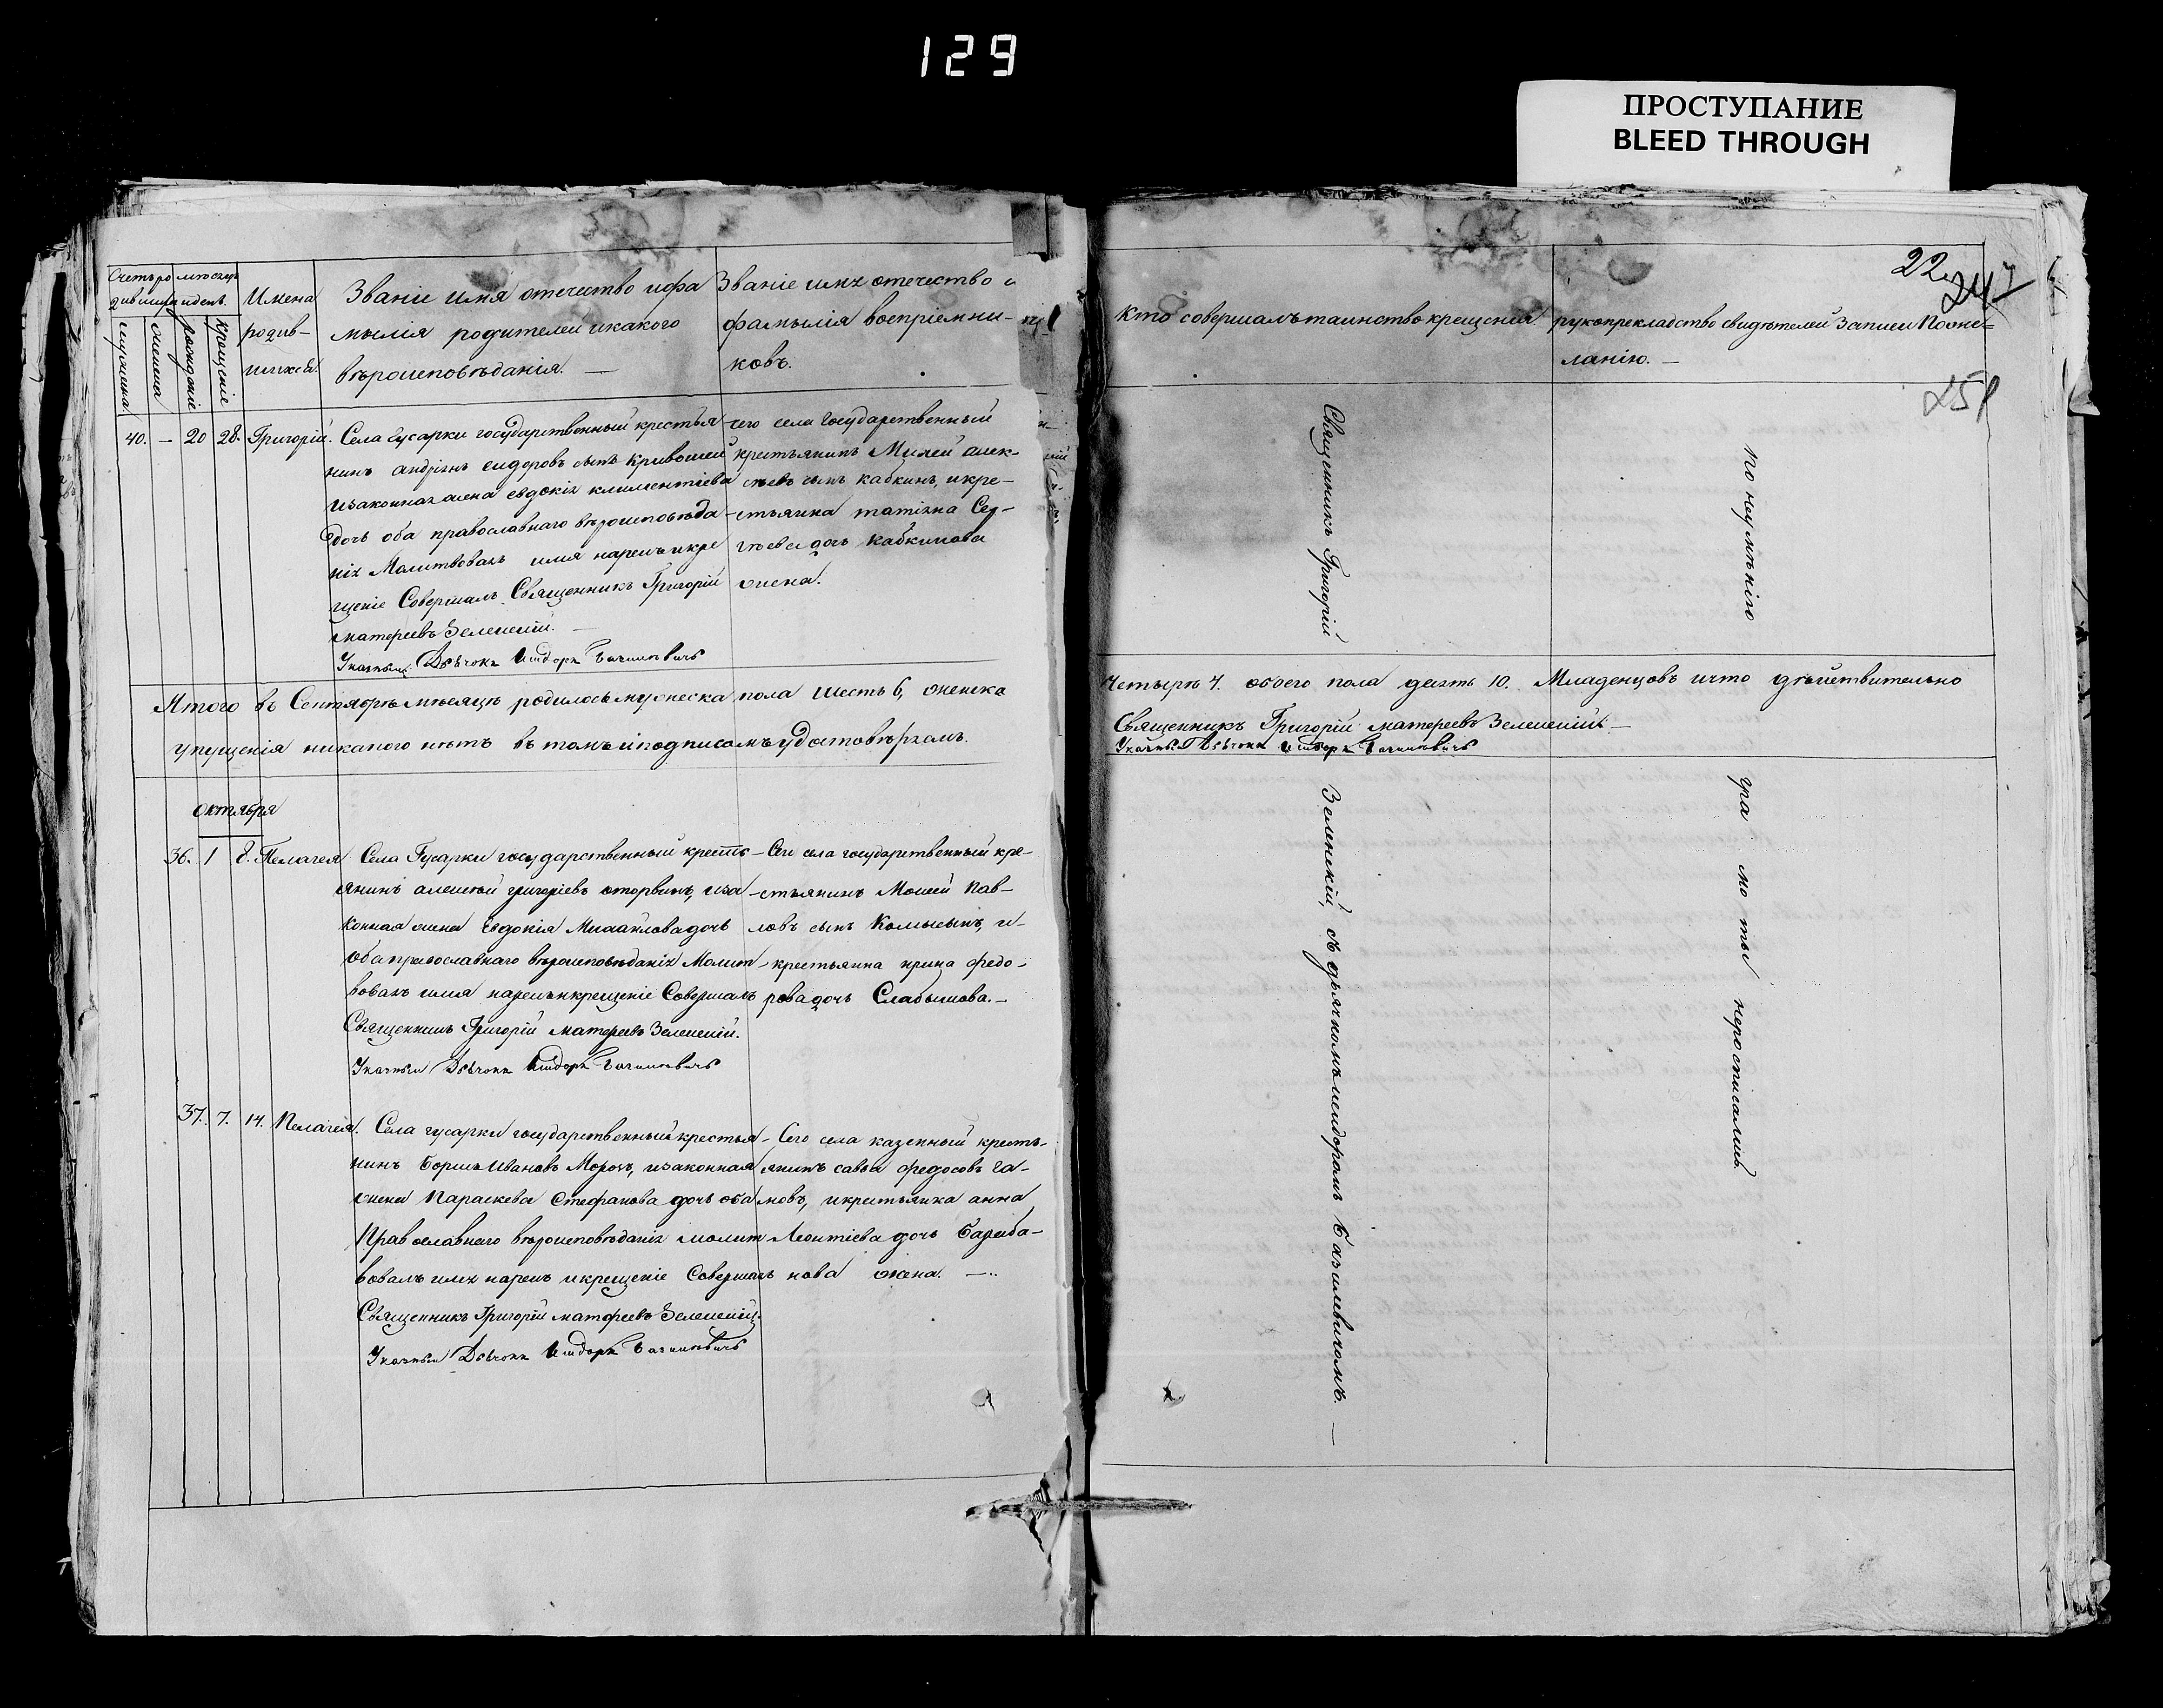 129
ПРОСТУПАНИЕ
BLEED THROUGH
22
247
251
Счетъ ро
дившихся
мѣсяцъ
и день
мужеска
женска
рожденіе
крещеніе
Имена
родив-
шихся.
Званіе имя отечество ифа
мылія родителей икакого
вѣроисповѣданія. —
Званіе имя отечество и
фамылія воспріемни-
ковъ.
Кто совершалъ таинство крещенія
рукоприкладство свидѣтелей записи Пооже-
ланію. —
40. — 20 28. Григорій.
Села Гусарки государственный крестья
нинъ андрѣянъ сидоровъ сынъ кривошей
изаконная жена евдокія климентіева
дочь оба православнаго вѣроисповѣда
нія Молитвовалъ имя нарекъ икре
щеніе Совершалъ Священникъ Григорій
матѳеевъ Зеленскій. —
Указный Дьячокъ Исидоръ Базилевичъ
сего села государственный
крестьянинъ Михей алек-
сѣевъ сынъ кабкинъ, икре-
стьянка татіяна Сер-
гѣева дочь кабкинова
жена.
Священникъ Григорій
по неумѣнію
Итого въ Сентябрѣ мѣсяцѣ родилось мужеска пола шесть 6, женска
упущенія никакого нѣтъ въ томъ иподписомъ удостовѣряемъ.
Четырѣ 4. обоего пола десять 10. Младенцовъ ичто дѣйствительно
Священникъ Григорій матѳеевъ Зеленскій. —
Указный Дьячокъ Исидоръ Базилевичъ
Октября
36. 1 8. Пелагея
Села Гусарки государственный кресть-
янинъ алексѣй григоріевъ оторвинъ, иза
конная жена Евдокія Михайлова дочь
оба православнаго вѣроисповѣданія Молит
вовалъ имя нарекъ икрещеніе Совершалъ
Священникъ Григорій матѳеевъ Зеленскій.
Указный Дьячокъ Исидоръ Базилевичъ
Сего села государственный кре-
стьянинъ Моисей Пав-
ловъ сынъ Колысынъ, и-
крестьянка ирина федо-
рова дочь Слабышова. —
37. 7. 14. Пелагея.
Села гусарки государственный крестья
нинъ Борисъ Ивановъ Морозъ, изаконная
жена Параскева Стефанова дочь оба
Православнаго вѣроисповѣданія молит
вовалъ имя нарекъ икрещеніе Совершалъ
Священникъ Григорій матѳеевъ Зеленскій.
Указный Дьячокъ Исидоръ Базилевичъ
Сего села казенный кресть-
янинъ савва федосовъ Га-
новъ, икрестьянка анна
Леонтіева дочь Бараба-
нова жена. —
Зеленскій, съ дьячкомъ исидоромъ Базилевичомъ. —
гра мо ты неросписались.